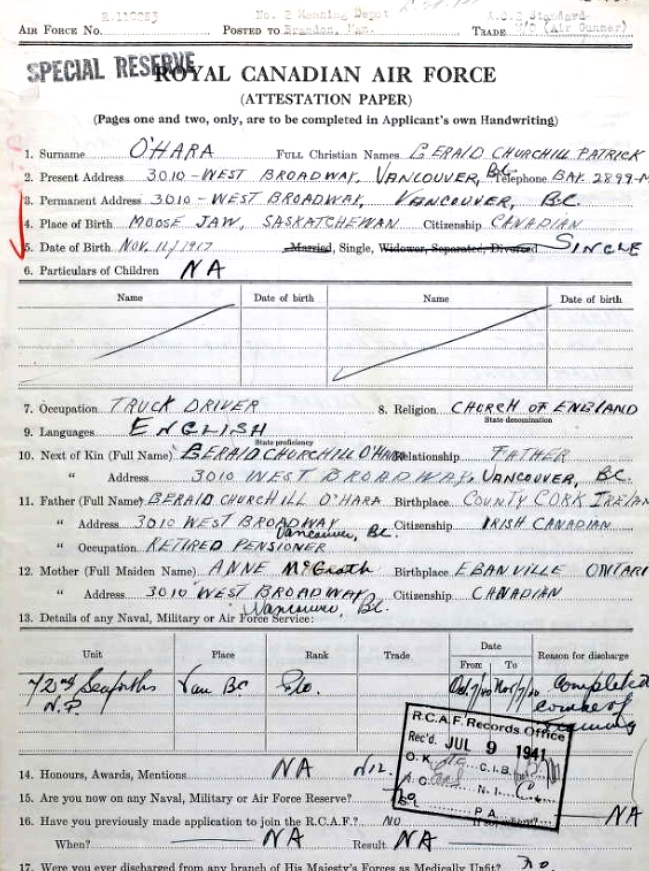 R.110053 No. 2 Manning Depot A.C.2 Standard
AIR FORCE NO. POSTED TO Brandon, Man. TRADE (Air Gunner)
SPECIAL RESERVE
ROYAL CANADIAN AIR FORCE
(ATTESTATION PAPER)
(Pages one and two, only, are to be completed in Applicant's own Handwriting)
1. Surname O'HARA FULL Christian Names GERALD CHURCHILL PATRICK
2. Present Address 3010 - WEST BROADWAY, VANCOUVER, B.C. Telephone BAY. 2899-M
3. Permanent Address 3010 - WEST BROADWAY, VANCOUVER, B.C.
4. Place of Birth MOOSE JAW, SASKATCHEWAN Citizenship CANADIAN
5. Date of Birth NOV. 11/1917 Married, Single, Widower, Separated, Divorced SINGLE
6. Particulars of Children NA
Name Date of birth Name Date of birth
7. Occupation TRUCK DRIVER 8. Religion CHURCH OF ENGLAND
State denomination
9. Languages ENGLISH
State proficiency
10. Next of Kin (Full Name) GERALD CHURCHILL O'HARA Relationship FATHER
" Address 3010 WEST BROADWAY, VANCOUVER, B.C.
11. Father (Full Name) GERALD CHURCHILL O'HARA Birthplace COUNTY CORK IRELAN
" Address 3010 WEST BROADWAY Vancouver, B.C. Citizenship IRISH CANADIAN
" Occupation RETIRED PENSIONER
12. Mother (Full Maiden Name) ANNE McGrath Birthplace EBANVILLE ONTARI
" Address 3010 WEST BROADWAY Vancouver, B.C. Citizenship CANADIAN
13. Details of any Naval, Military or Air Force Service:
Unit Place Rank Trade Date Reason for discharge
From To
72nd Seaforths Van BC Pte. Oct. 7/40 Nov 7/40 Completed
N.P. course of
training
R.C.A.F. Records Office
Rec'd. JUL 9 1941
O.K. C.I.B.
A.C. N.I.
P.A.
14. Honours, Awards, Mentions NA
15. Are you now on any Naval, Military or Air Force Reserve? No
16. Have you previously made application to join the R.C.A.F.? NO If so, where? NA
When? NA Result NA
17. Were you ever discharged from any branch of His Majesty's Forces as Medically Unfit? No.